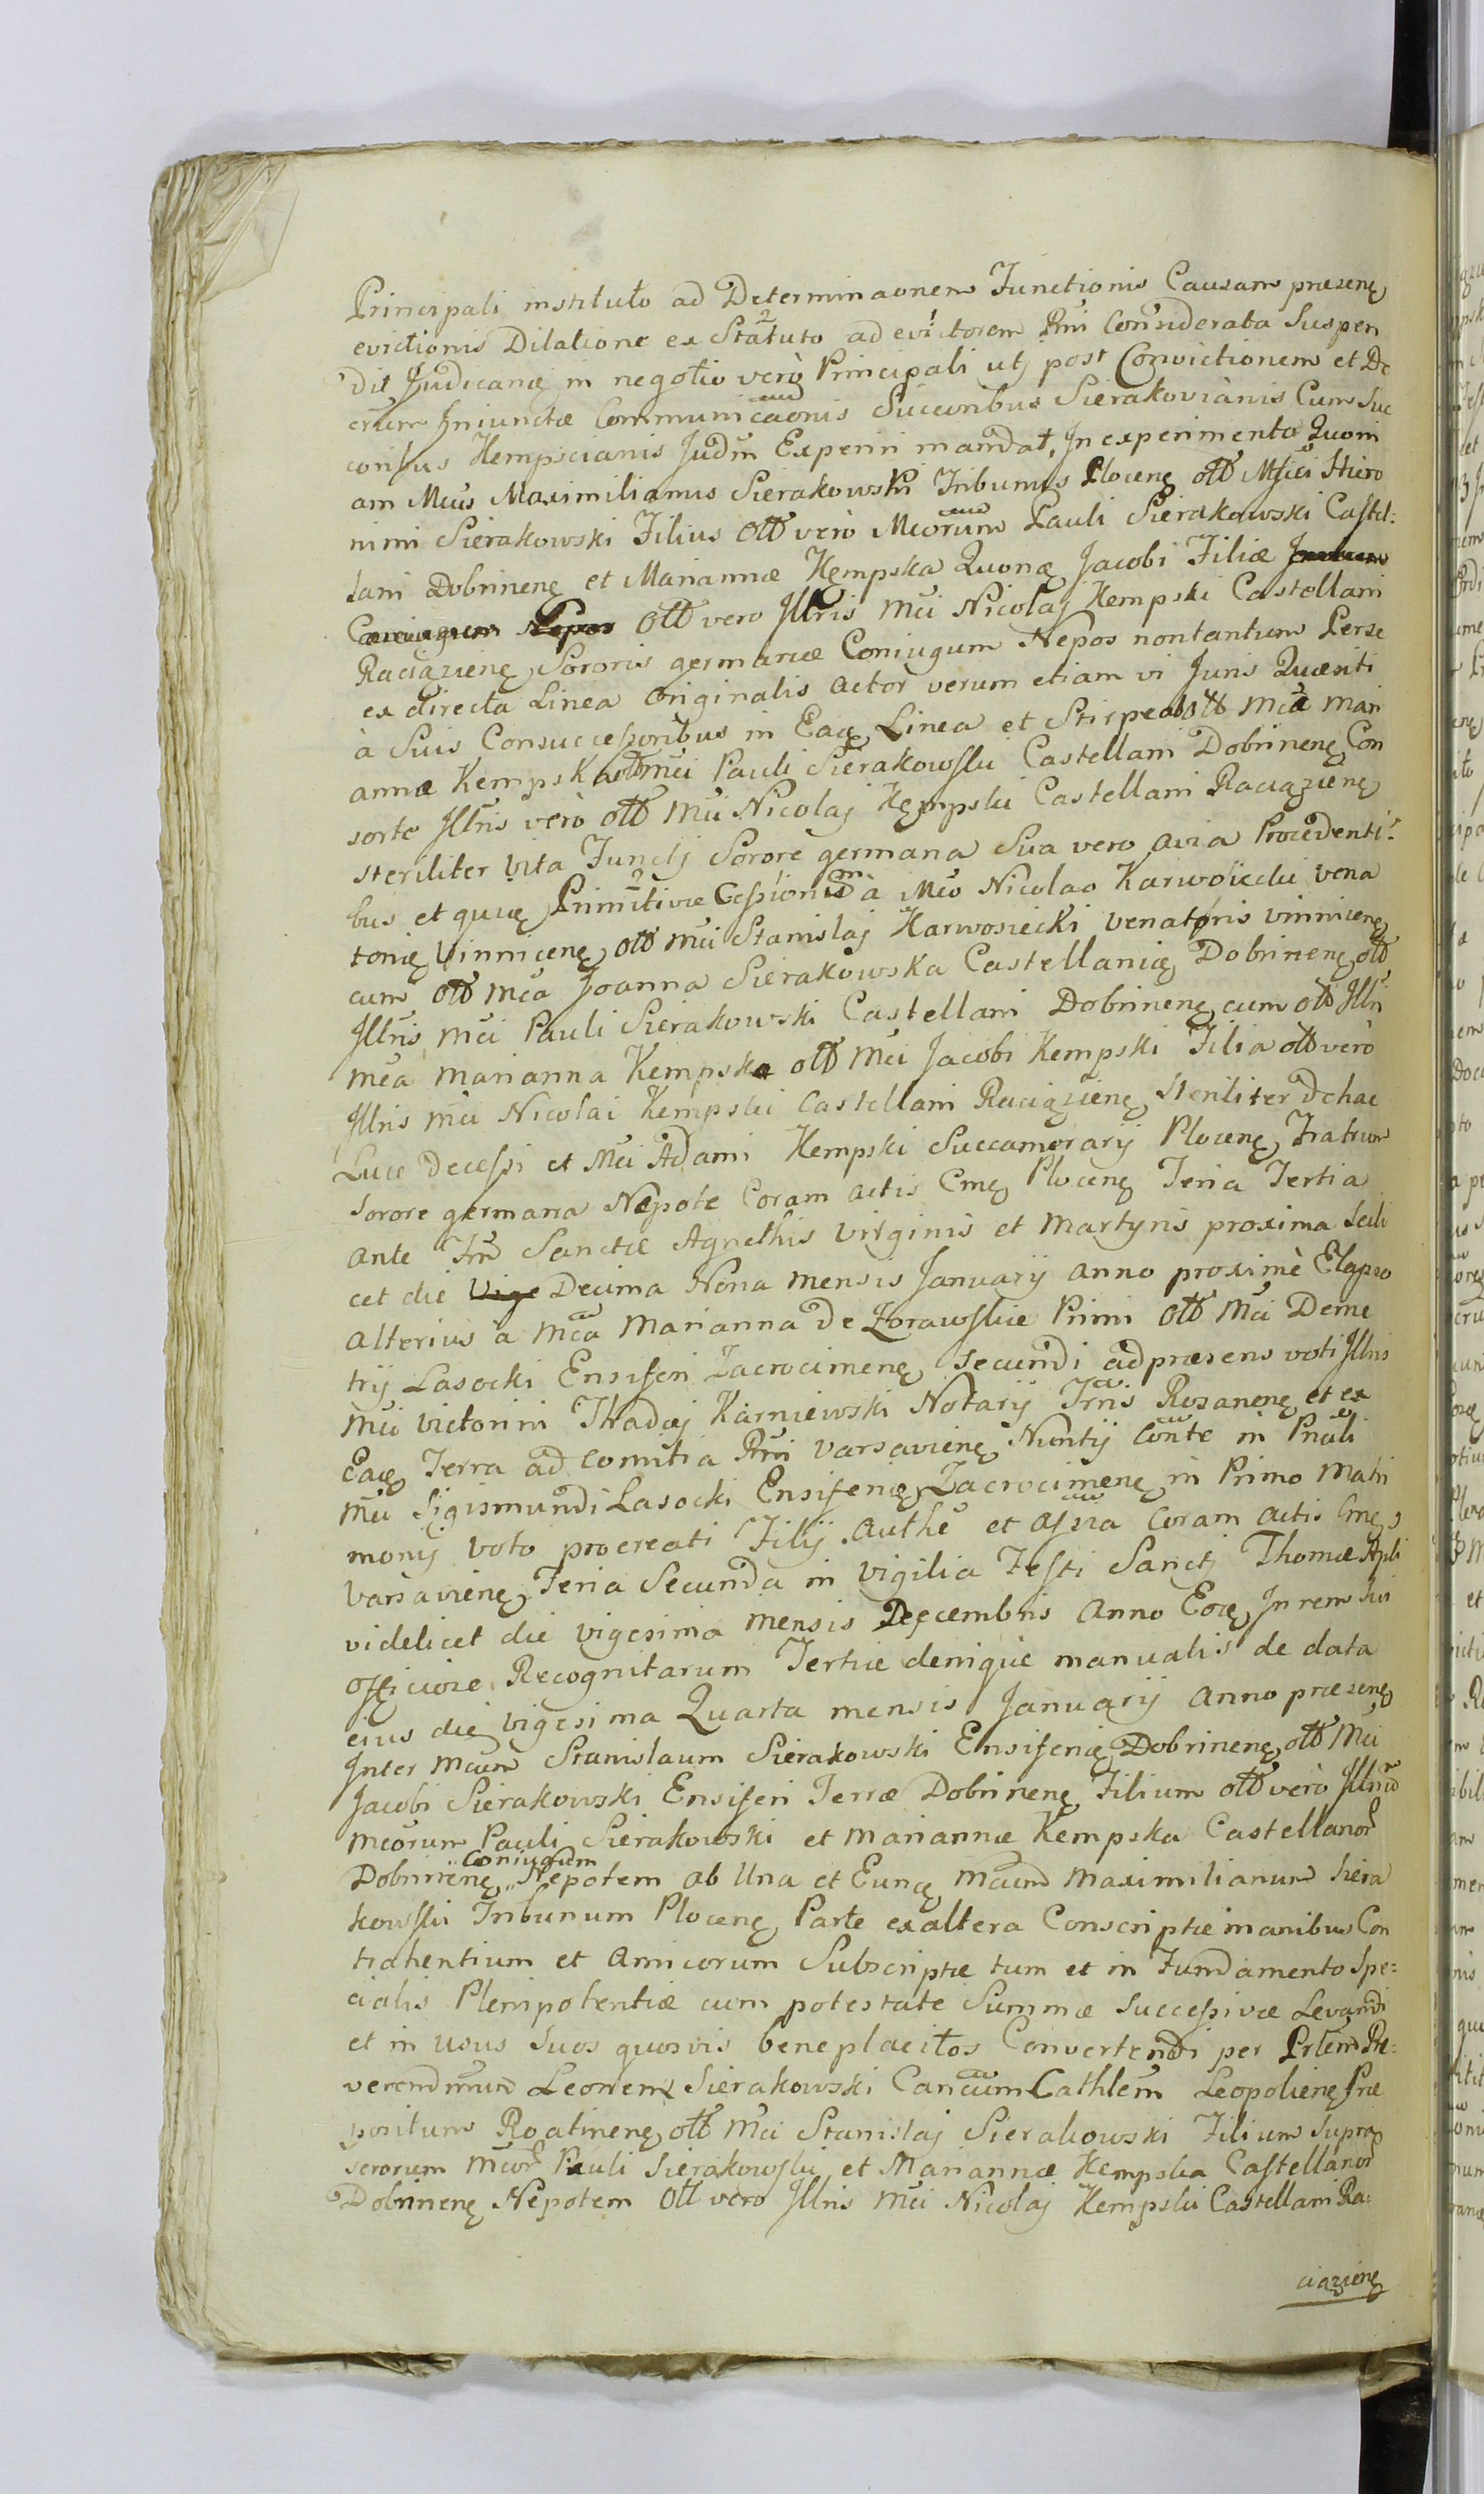 Principali instituto ad Determinaonem Functionis Causam præsenę
evictionis Dilatione ex Statuto ad evictorem Rni Considerata Suspen
dit Judicanę in negotio verò Principali utj post Convictionem et De
cretum Iniunctæ Communicaonis Succoribus Sierakovianis Cum Suc
coribus Kempscianis Judm Experiri mandat, In experimento Quoni
am Mcus Maximilianus Sierakowski Tribunus Plocenę olt Mfici Hiero
nimi Sierakowski Filius olt verò Mcorum Pauli Sierakowski Castel:
lani Dobrinenę et Mariannæ Kempska Quonę Jacobi Filiæ
Coniugum Nepos olt vero Illris Mci Nicolaj Kempski Castellani
Raciązienę Sororis germanæ Coniugum Nepos nontantum Perse
ex directa Linea originalis actor verum etiam vi Juris Quæsiti
à Suis Consuccessoribus in Eaę Linea et Stirpe ab olt Mca Mari
anna Kempska olt Mci Pauli Sierakowski Castellani Dobrinenę Con
sorte Illris verò olt Mci Nicolaj Kempski Castellani Raciązienę
steriliter vita Functj Sorore germana Sua vero avia Procedenti:
bus et quię Primitivæ Cessionis à Mco Nicolao Karwosiecki vena
torię Vinnicenę olt Mci Stanislaj Karwosiecki venatoris vinnicenę
cum olt Mca Joanna Sierakowska Castellanię Dobrinenę olt
Illris Mci Pauli Sierakowski Castellani Dobrinenę cum olt Illri
Mca Marianna Kempska olt Mci Jacobi Kempski Filia olt verò
Illris Mci Nicolai Kempski Castellani Raciązienę steriliter dehac
Luce Decessi et Mci Adami Kempski Succamerarij Plocenę Fratrum
Sorore germana Nepote Coram actis Cmę Plocenę Feria Tertia
ante Ftm Sanctæ Agnethis Virginis et Martyris proxima Scili
cet die Vige Decima Nona mensis Januarij anno proximè Elapso
alterius a Mca Marianna De Zorawskie Primi olt Mci Deme
trij Lasocki Ensiferi Zacrocimenę secundi adpræsens voti Illris
Mci Victorini Thadæj Karniewski Notarij Trris Rozanenę et ex
Eaę Terra ad Comitia Rni Varsavienę Nuntij Conte in Pnali
Mci Sigismundi Lasocki Ensiferię Zacrocimenę in Primo Matri
monij voto procreati Filij Authe et assia Coram actis Cmę
Varsavienę Feria Secunda in Vigilia Festi Sanctj Thomæ Apli
videlicet die vigesima mensis Decembris Anno Eoę In rem sui
officiose Recognitarum Tertiæ denique manualis de data
eius die vigesima Quarta mensis Januarij anno præsenę
Inter Mcum Stanislaum Sierakowski Ensiferię Dobrinenę olt Mci
Jacobi Sierakowski Ensiferi Terræ Dobrinenę Filium olt verò Illrium
Mcorum Pauli Sierakowski et Mariannæ Kempska Castellanor
Dobrinenę Coniugum Nepotem ab Una et Eunę Mcum Maximilianum Siera
kowski Tribunum Plocenę Parte exaltera Conscriptæ manibus Con
trahentium et Amicorum Subscriptæ tum et in Fundamento Spe:
cialis Plenipotentiæ cum potestate Summæ Successivæ Levandi
et in usus Suos quosvis beneplacitos Convertendi per Prlem Re:
verendmum Leonem Sierakowski Cancum Cathlem Leopolienę Præ
positum Roatinenę olt Mci Stanislaj Sierakowski Filium Supra
scrorum Mcor Pauli Sierakowski et Mariannæ Kempska Castellanor
Dobrinenę Nepotem olt vero Illris Mci Nicolaj Kempski Castellani Ra:
ciązienę